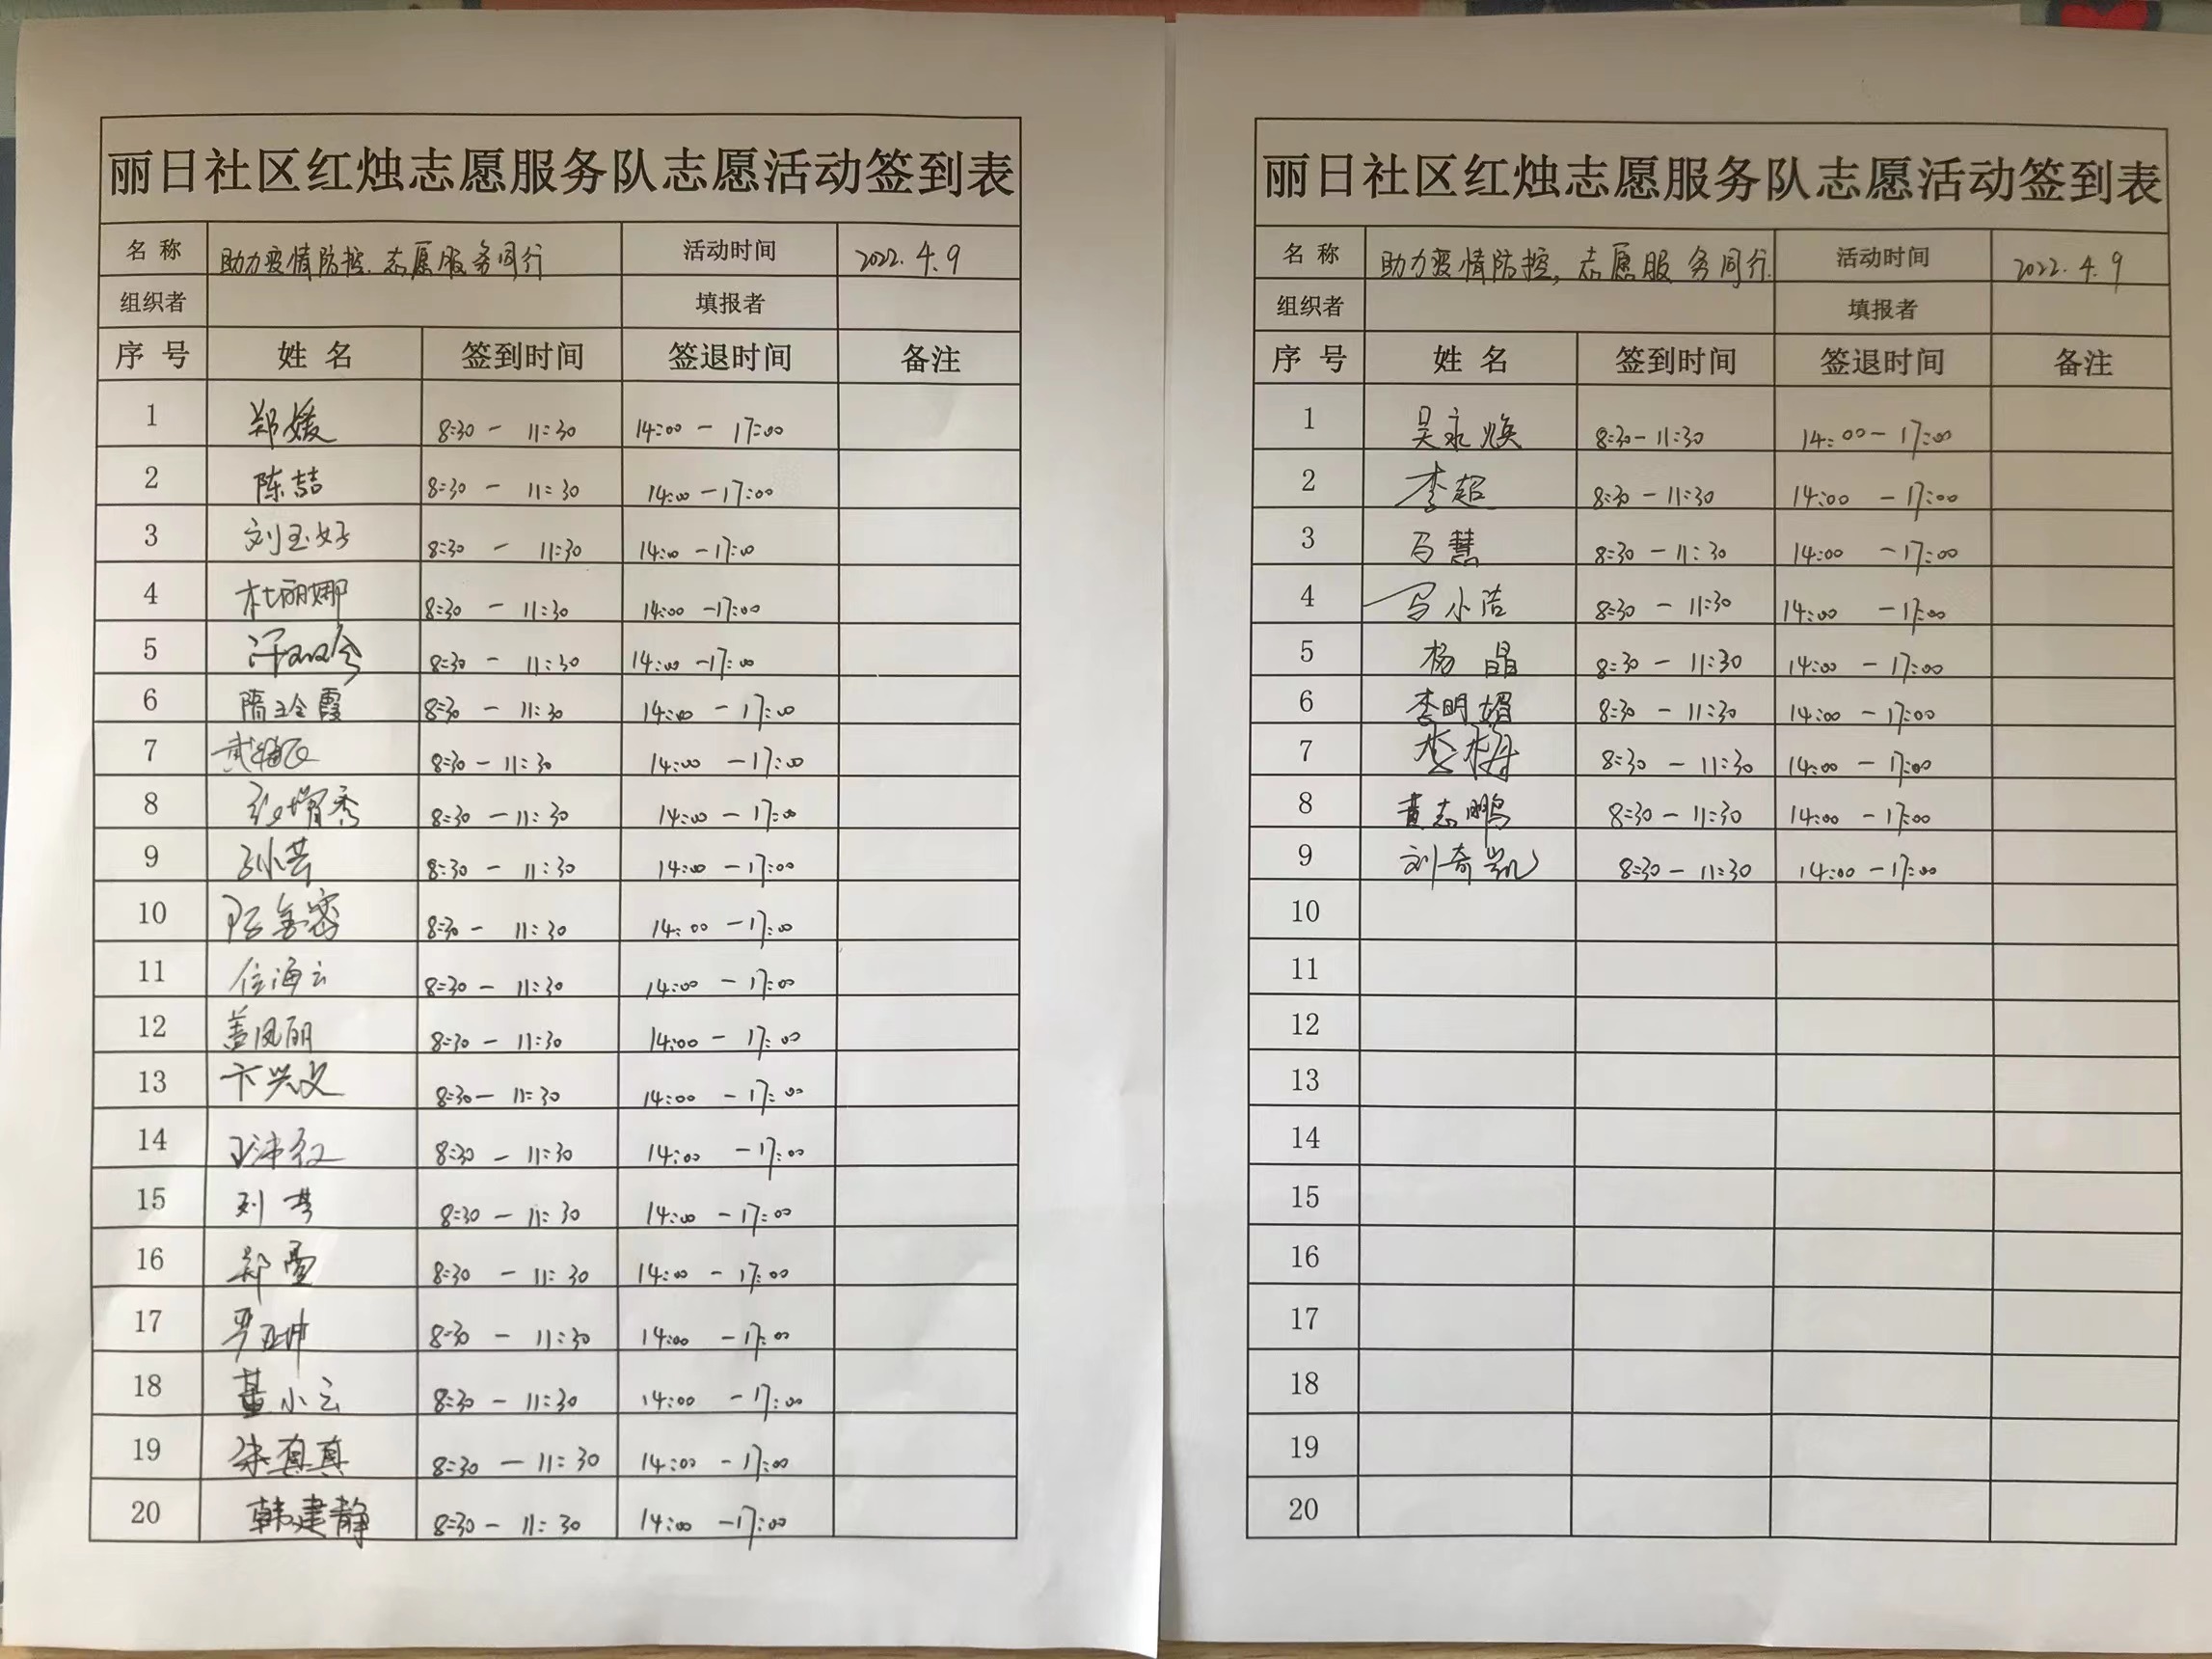 丽日社区红烛志愿服务队志愿活动签到表
名 称 助力疫情防控.志愿服务同行 活动时间 2022.4.9
组织者 填报者
序 号 姓 名 签到时间 签退时间 备注
1 郑媛 8:30 - 11:30 14:00 - 17:00
2 陈喆 8:30 - 11:30 14:00 - 17:00
3 刘玉好 8:30 - 11:30 14:00 - 17:00
4 杜丽娜 8:30 - 11:30 14:00 - 17:00
5 8:30 - 11:30 14:00 - 17:00
6 隋玲霞 8:30 - 11:30 14:00 - 17:00
7 8:30 - 11:30 14:00 - 17:00
8 张增秀 8:30 - 11:30 14:00 - 17:00
9 孙芸 8:30 - 11:30 14:00 - 17:00
10 8:30 - 11:30 14:00 - 17:00
11 位海云 8:30 - 11:30 14:00 - 17:00
12 盖凤丽 8:30 - 11:30 14:00 - 17:00
13 卞兴文 8:30 - 11:30 14:00 - 17:00
14 8:30 - 11:30 14:00 - 17:00
15 刘 8:30 - 11:30 14:00 - 17:00
16 郑雪 8:30 - 11:30 14:00 - 17:00
17 罗亚坤 8:30 - 11:30 14:00 - 17:00
18 董小云 8:30 - 11:30 14:00 - 17:00
19 朱真真 8:30 - 11:30 14:00 - 17:00
20 韩建静 8:30 - 11:30 14:00 - 17:00
丽日社区红烛志愿服务队志愿活动签到表
名 称 助力疫情防控,志愿服务同行. 活动时间 2022.4.9
组织者 填报者
序 号 姓 名 签到时间 签退时间 备注
1 吴永焕 8:30 - 11:30 14:00 - 17:00
2 李超 8:30 - 11:30 14:00 - 17:00
3 马慧 8:30 - 11:30 14:00 - 17:00
4 马小洁 8:30 - 11:30 14:00 - 17:00
5 杨晶 8:30 - 11:30 14:00 - 17:00
6 李明媚 8:30 - 11:30 14:00 - 17:00
7 李梅 8:30 - 11:30 14:00 - 17:00
8 黄志鹏 8:30 - 11:30 14:00 - 17:00
9 刘奇凯 8:30 - 11:30 14:00 - 17:00
10
11
12
13
14
15
16
17
18
19
20